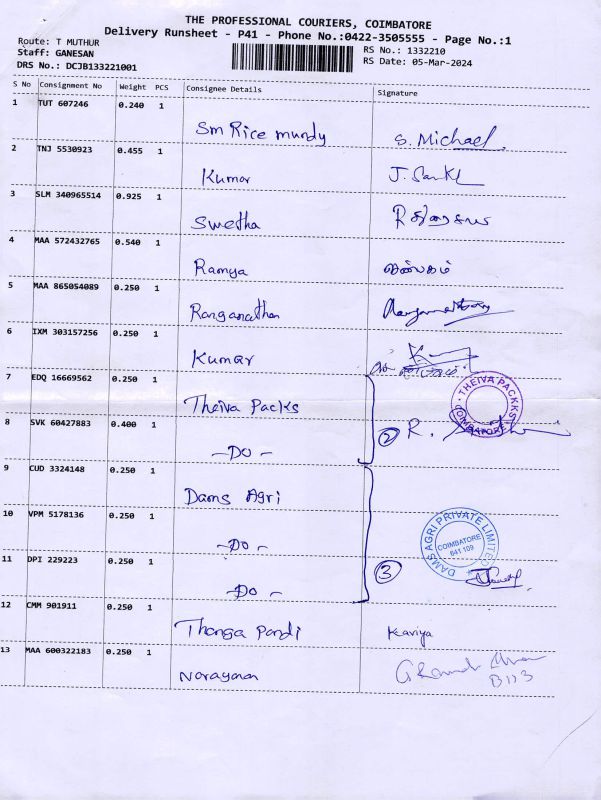 THE PROFESSIONAL COURIERS, COIMBATORE
Delivery Runsheet - P41 - Phone No.:0422-3505555 - Page No.:1
Route: T MUTHUR
Staff: GANESAN
DRS No.: DCJB133221001
RS No.: 1332210
RS Date: 05-Mar-2024
S No Consignment No Weight PCS Consignee Details Signature
1 TUT 607246 0.240 1 Sm Rice mundy S. Michael
2 TNJ 5530923 0.455 1 Kumar
3 SLM 340965514 0.925 1 Swetha
4 MAA 572432765 0.540 1 Ramya
5 MAA 865054089 0.250 1 Ranganathan
6 IXM 303157256 0.250 1 Kumar
7 EDQ 16669562 0.250 1 Theiva Packs
THEIVA PACKKS COIMBATORE
8 SVK 60427883 0.400 1 -Do- 2 R.
9 CUD 3324148 0.250 1 Dams Agri
10 VPM 5178136 0.250 1 -Do-
DAMS AGRI PRIVATE LIMITED
COIMBATORE
641 109
11 DPI 229223 0.250 1 -Do- 3
12 CMM 901911 0.250 1 Thanga Pandi Kaviya
13 MAA 600322183 0.250 1 Narayanan